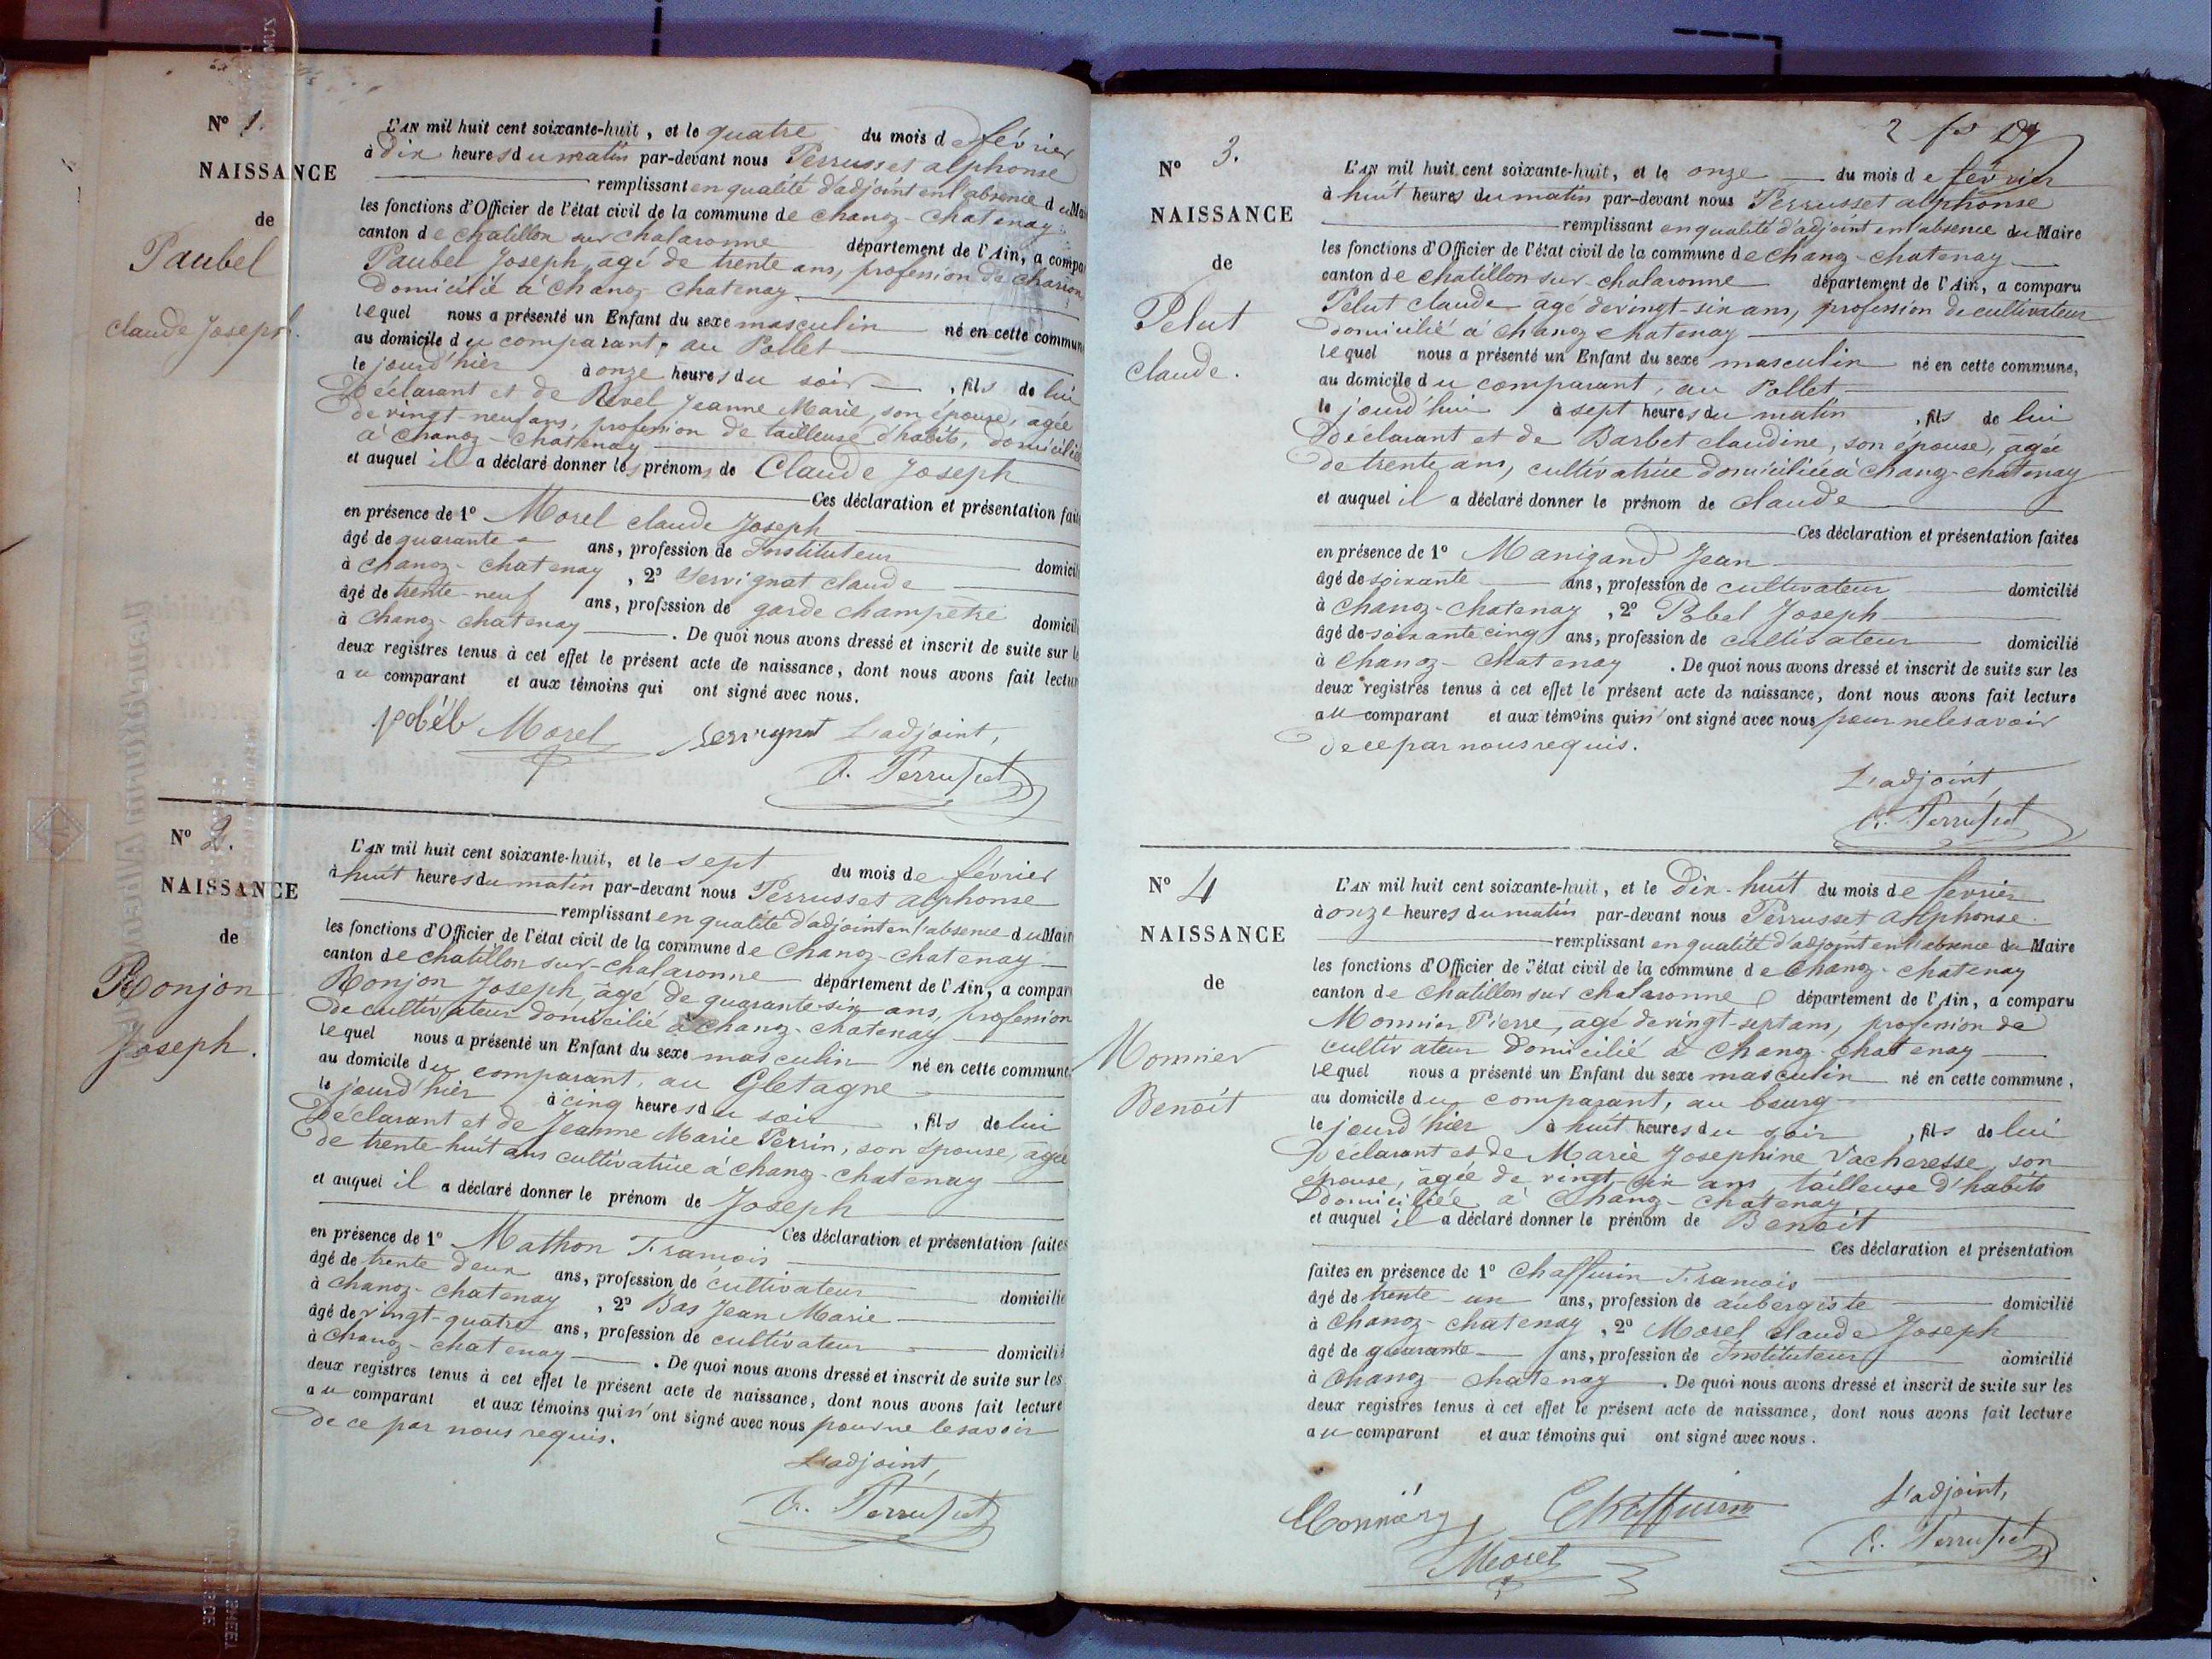 N° 1.
NAISSANCE
de
Paubel
Claude Joseph.
L'AN mil huit cent soixante-huit, et le quatre du mois de février
à dix heures du matin par-devant nous Perrusset alphonse
remplissant en qualité d'adjoint en l'absence du Mai
les fonctions d'Officier de l'état civil de la commune de Chanoz-Chatenay
canton de Chatillon sur chalaronne département de l'Ain, a compa
Paubel Joseph, agé de trente ans, profession de charron
domicilié à Chanoz-Chatenay
lequel nous a présenté un Enfant du sexe masculin né en cette commun
au domicile du comparant, au Pollet
le jourd'hier à onze heures du soir, fils de lui
Déclarant et de Revel Jeanne Marie, son épouse, agée
de vingt-neuf ans, profession de tailleuse d'habits, domiciliée
à Chanoz-Chatenay
et auquel il a déclaré donner les prénoms de Claude Joseph
Ces déclaration et présentation fait
en présence de 1° Morel claude Joseph
âgé de quarante ans, profession de Instituteur domicili
à Chanoz-chatenay, 2° Servignat claude
âgé de trente-neuf ans, profession de garde champetre domicili
à Chanoz-chatenay. De quoi nous avons dressé et inscrit de suite sur le
deux registres tenus à cet effet le présent acte de naissance, dont nous avons fait lectur
au comparant et aux témoins qui ont signé avec nous.
pobél Morel Servignat L'adjoint,
A. Perrusset
N° 2.
NAISSANCE
de
Ronjon
Joseph.
L'AN mil huit cent soixante-huit, et le sept du mois de février
à huit heures du matin par-devant nous Perrusset alphonse
remplissant en qualité d'adjoint en l'absence du Mair
les fonctions d'Officier de l'état civil de la commune de Chanoz-chatenay
canton de chatillon sur-chalaronne département de l'Ain, a compar
Ronjon Joseph, agé de quarante-six ans, profession
de cultivateur domicilié à Chanoz-chatenay
lequel nous a présenté un Enfant du sexe masculin né en cette commune
au domicile du comparant, au Gletagne
le jourd'hier à cinq heures du soir, fils de lui
Déclarant et de Jeanne Marie Perrin, son épouse, agée
de trente-huit ans cultivatrice à Chanoz-chatenay
et auquel il a déclaré donner le prénom de Joseph
Ces déclaration et présentation faites
en présence de 1° Mathon Francois
âgé de trente deux ans, profession de cultivateur domicilié
à Chanoz-chatenay, 2° Bas Jean Marie
âgé de vingt-quatre ans, profession de cultivateur domicilié
à Chanoz-chatenay. De quoi nous avons dressé et inscrit de suite sur les
deux registres tenus à cet effet le présent acte de naissance, dont nous avons fait lecture
au comparant et aux témoins qui n'ont signé avec nous pour ne le savoir
de ce par nous requis.
L'adjoint,
A. Perrusset
2 fo
N° 3.
NAISSANCE
de
Pelut
Claude.
L'AN mil huit cent soixante-huit, et le onze du mois de février
à huit heures du matin par-devant nous Perrusset alphonse
remplissant en qualité d'adjoint en l'absence du Maire
les fonctions d'Officier de l'état civil de la commune de Chanoz-chatenay
canton de Chatillon sur-chalaronne département de l'Ain, a comparu
Pelut claude agé de vingt-six ans, profession de cultivateur
domicilié à Chanoz chatenay
lequel nous a présenté un Enfant du sexe masculin né en cette commune,
au domicile du comparant, au Pollet
le jourd'hui à sept heures du matin, fils de lui
Déclarant et de Barbet claudine, son épouse, agée
de trente ans, cultivatrice domiciliée à Chanoz-chatenay
et auquel il a déclaré donner le prénom de Claude
Ces déclaration et présentation faites
en présence de 1° Manigand Jean
âgé de soixante ans, profession de cultivateur domicilié
à Chanoz-chatenay, 2° Pobel Joseph
âgé de soixante cinq ans, profession de cultivateur domicilié
à Chanoz-Chatenay. De quoi nous avons dressé et inscrit de suite sur les
deux registres tenus à cet effet le présent acte de naissance, dont nous avons fait lecture
au comparant et aux témoins qui n'ont signé avec nous pour ne le savoir
de ce par nous requis.
L'adjoint
A. Perrusset
N° 4
NAISSANCE
de
Monnier
Benoit
L'AN mil huit cent soixante-huit, et le Dix-huit du mois de février
à onze heures du matin par-devant nous Perrusset Alphonse
remplissant en qualité d'adjoint en l'absence du Maire
les fonctions d'Officier de l'état civil de la commune de Chanoz-chatenay
canton de Chatillon sur chalaronne département de l'Ain, a comparu
Monnier Pierre, agé de vingt-sept ans, profession de
cultivateur domicilié à Chanoz-chatenay
lequel nous a présenté un Enfant du sexe masculin né en cette commune,
au domicile du comparant, au bourg
le jourd'hier à huit heures du soir, fils de lui
Déclarant et de Marie Josephine Vacheresse, son
épouse, agée de vingt-six ans, tailleuse d'habits
domiciliée à Chanoz-chatenay
et auquel il a déclaré donner le prénom de Benoit
Ces déclaration et présentation
faites en présence de 1° Chaffurin Francois
âgé de trente-un ans, profession de aubergiste domicilié
à Chanoz-chatenay, 2° Morel claude Joseph
âgé de quarante ans, profession de Instituteur domicilié
à Chanoz-chatenay. De quoi nous avons dressé et inscrit de suite sur les
deux registres tenus à cet effet le présent acte de naissance, dont nous avons fait lecture
au comparant et aux témoins qui ont signé avec nous.
Chaffurin L'adjoint,
Morel A. Perrusset